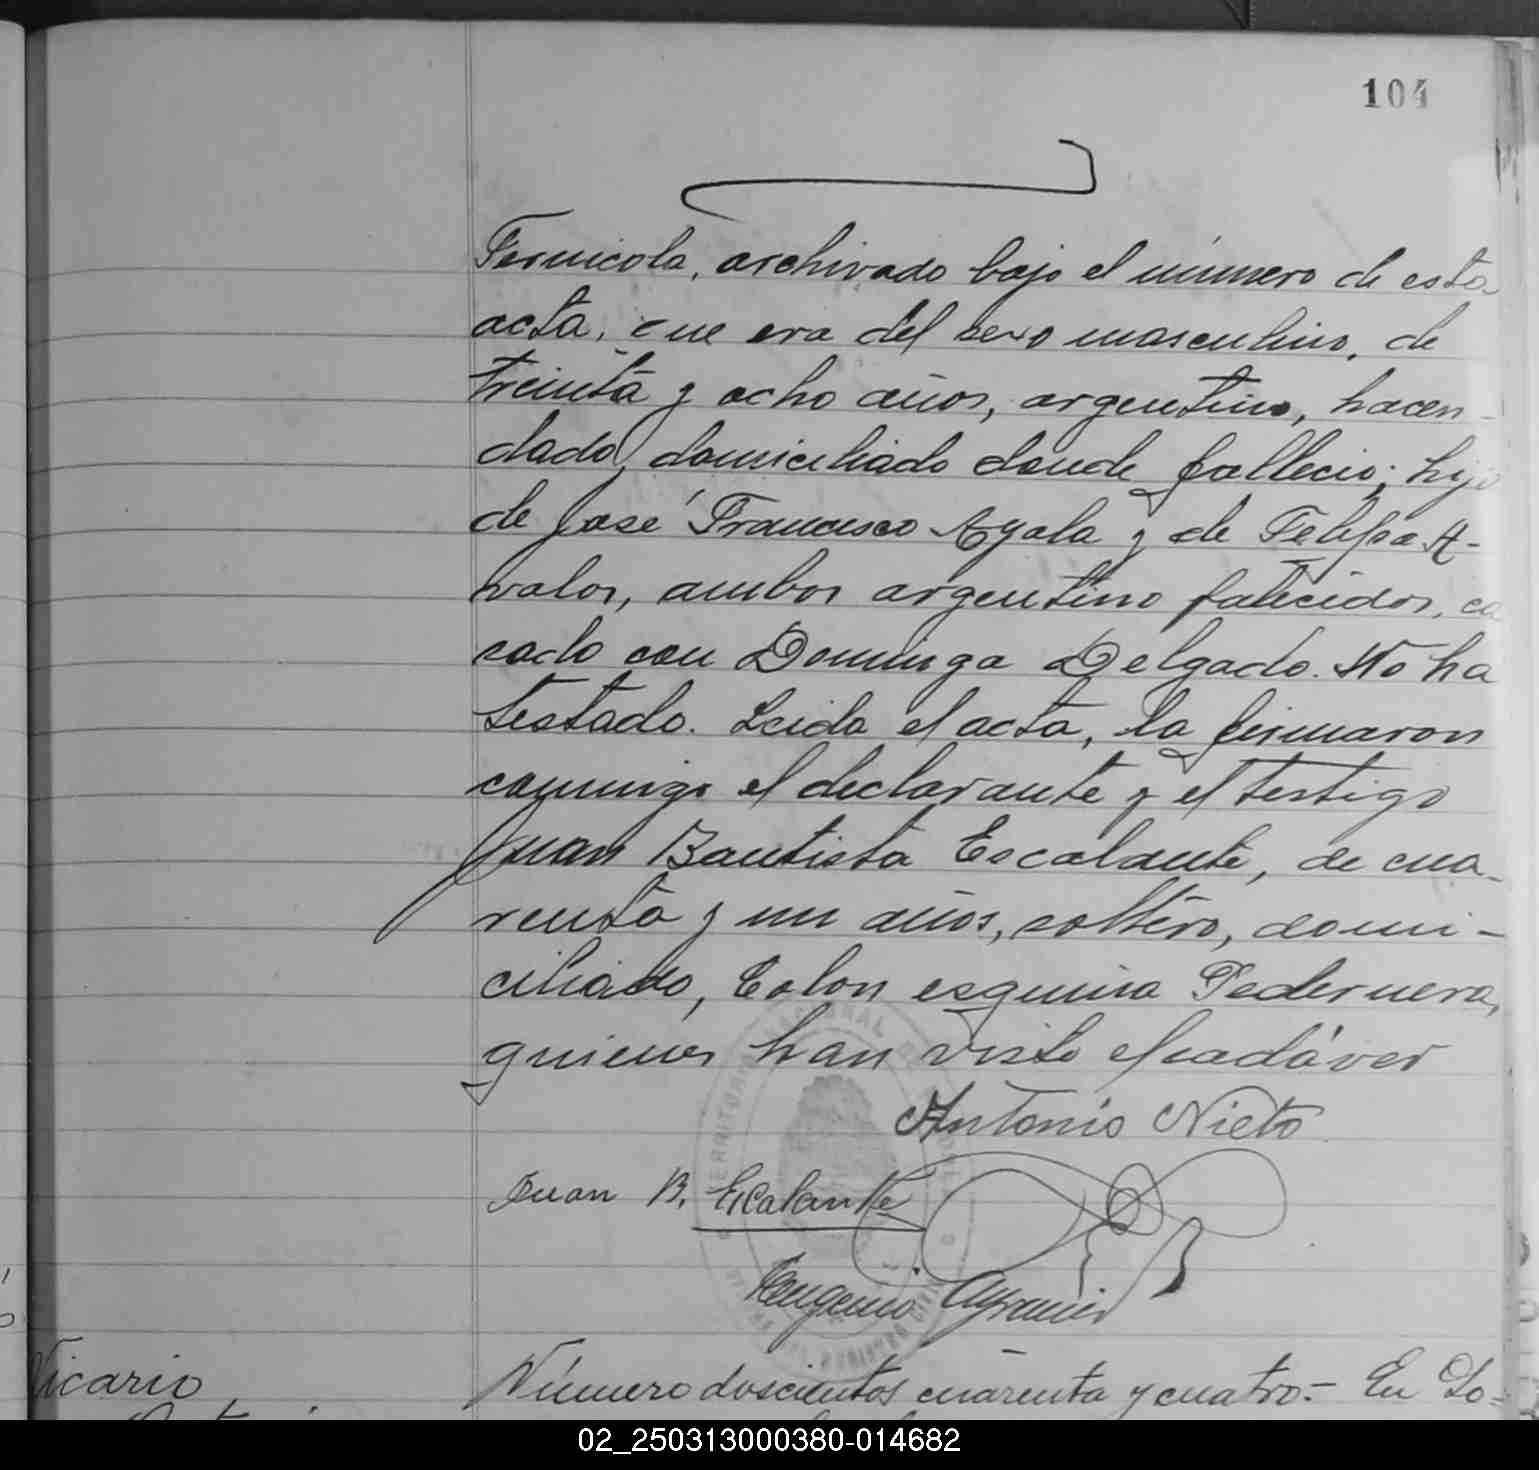 104
Fernicola, archivado bajo el número de esta
acta, que era del sexo masculino, de
treinta y ocho años, argentino, hacen-
dado, domiciliado donde fallecio; hijo
de José Francisco Ayala y de Felipa A-
valos, ambos argentino falecidos, ca
sado con Dominga Delgado. No ha
testado. Leida el acta, la firmaron
conmigo el declarante y el testigo
Juan Bautista Escalante, de cua-
renta y un años, soltero, domi-
ciliado, Colon esquina Pedernera,
quienes han visto el cadáver
Antonio Nieto
Juan B. Escalante
Eugenio
Vicario
Número doscientos cuarenta y cuatro.- En To-
02_250313000380-014682